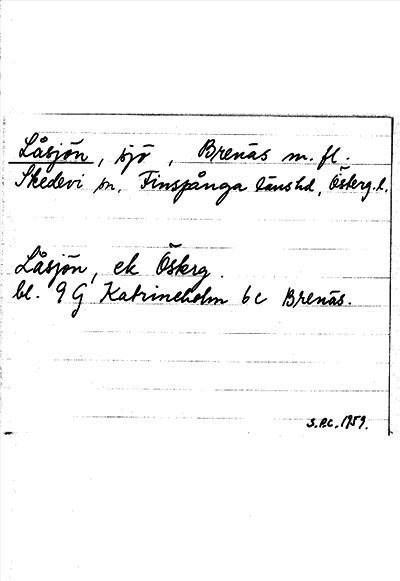 Låsjön, sjö, Brenäs m.fl.
Skedevi sn, Finspånga länshd, Österg.l.
Låsjön, ek Österg.
bl. 9 G Katrineholm 6c Brenäs.
S.P.C. 1959.